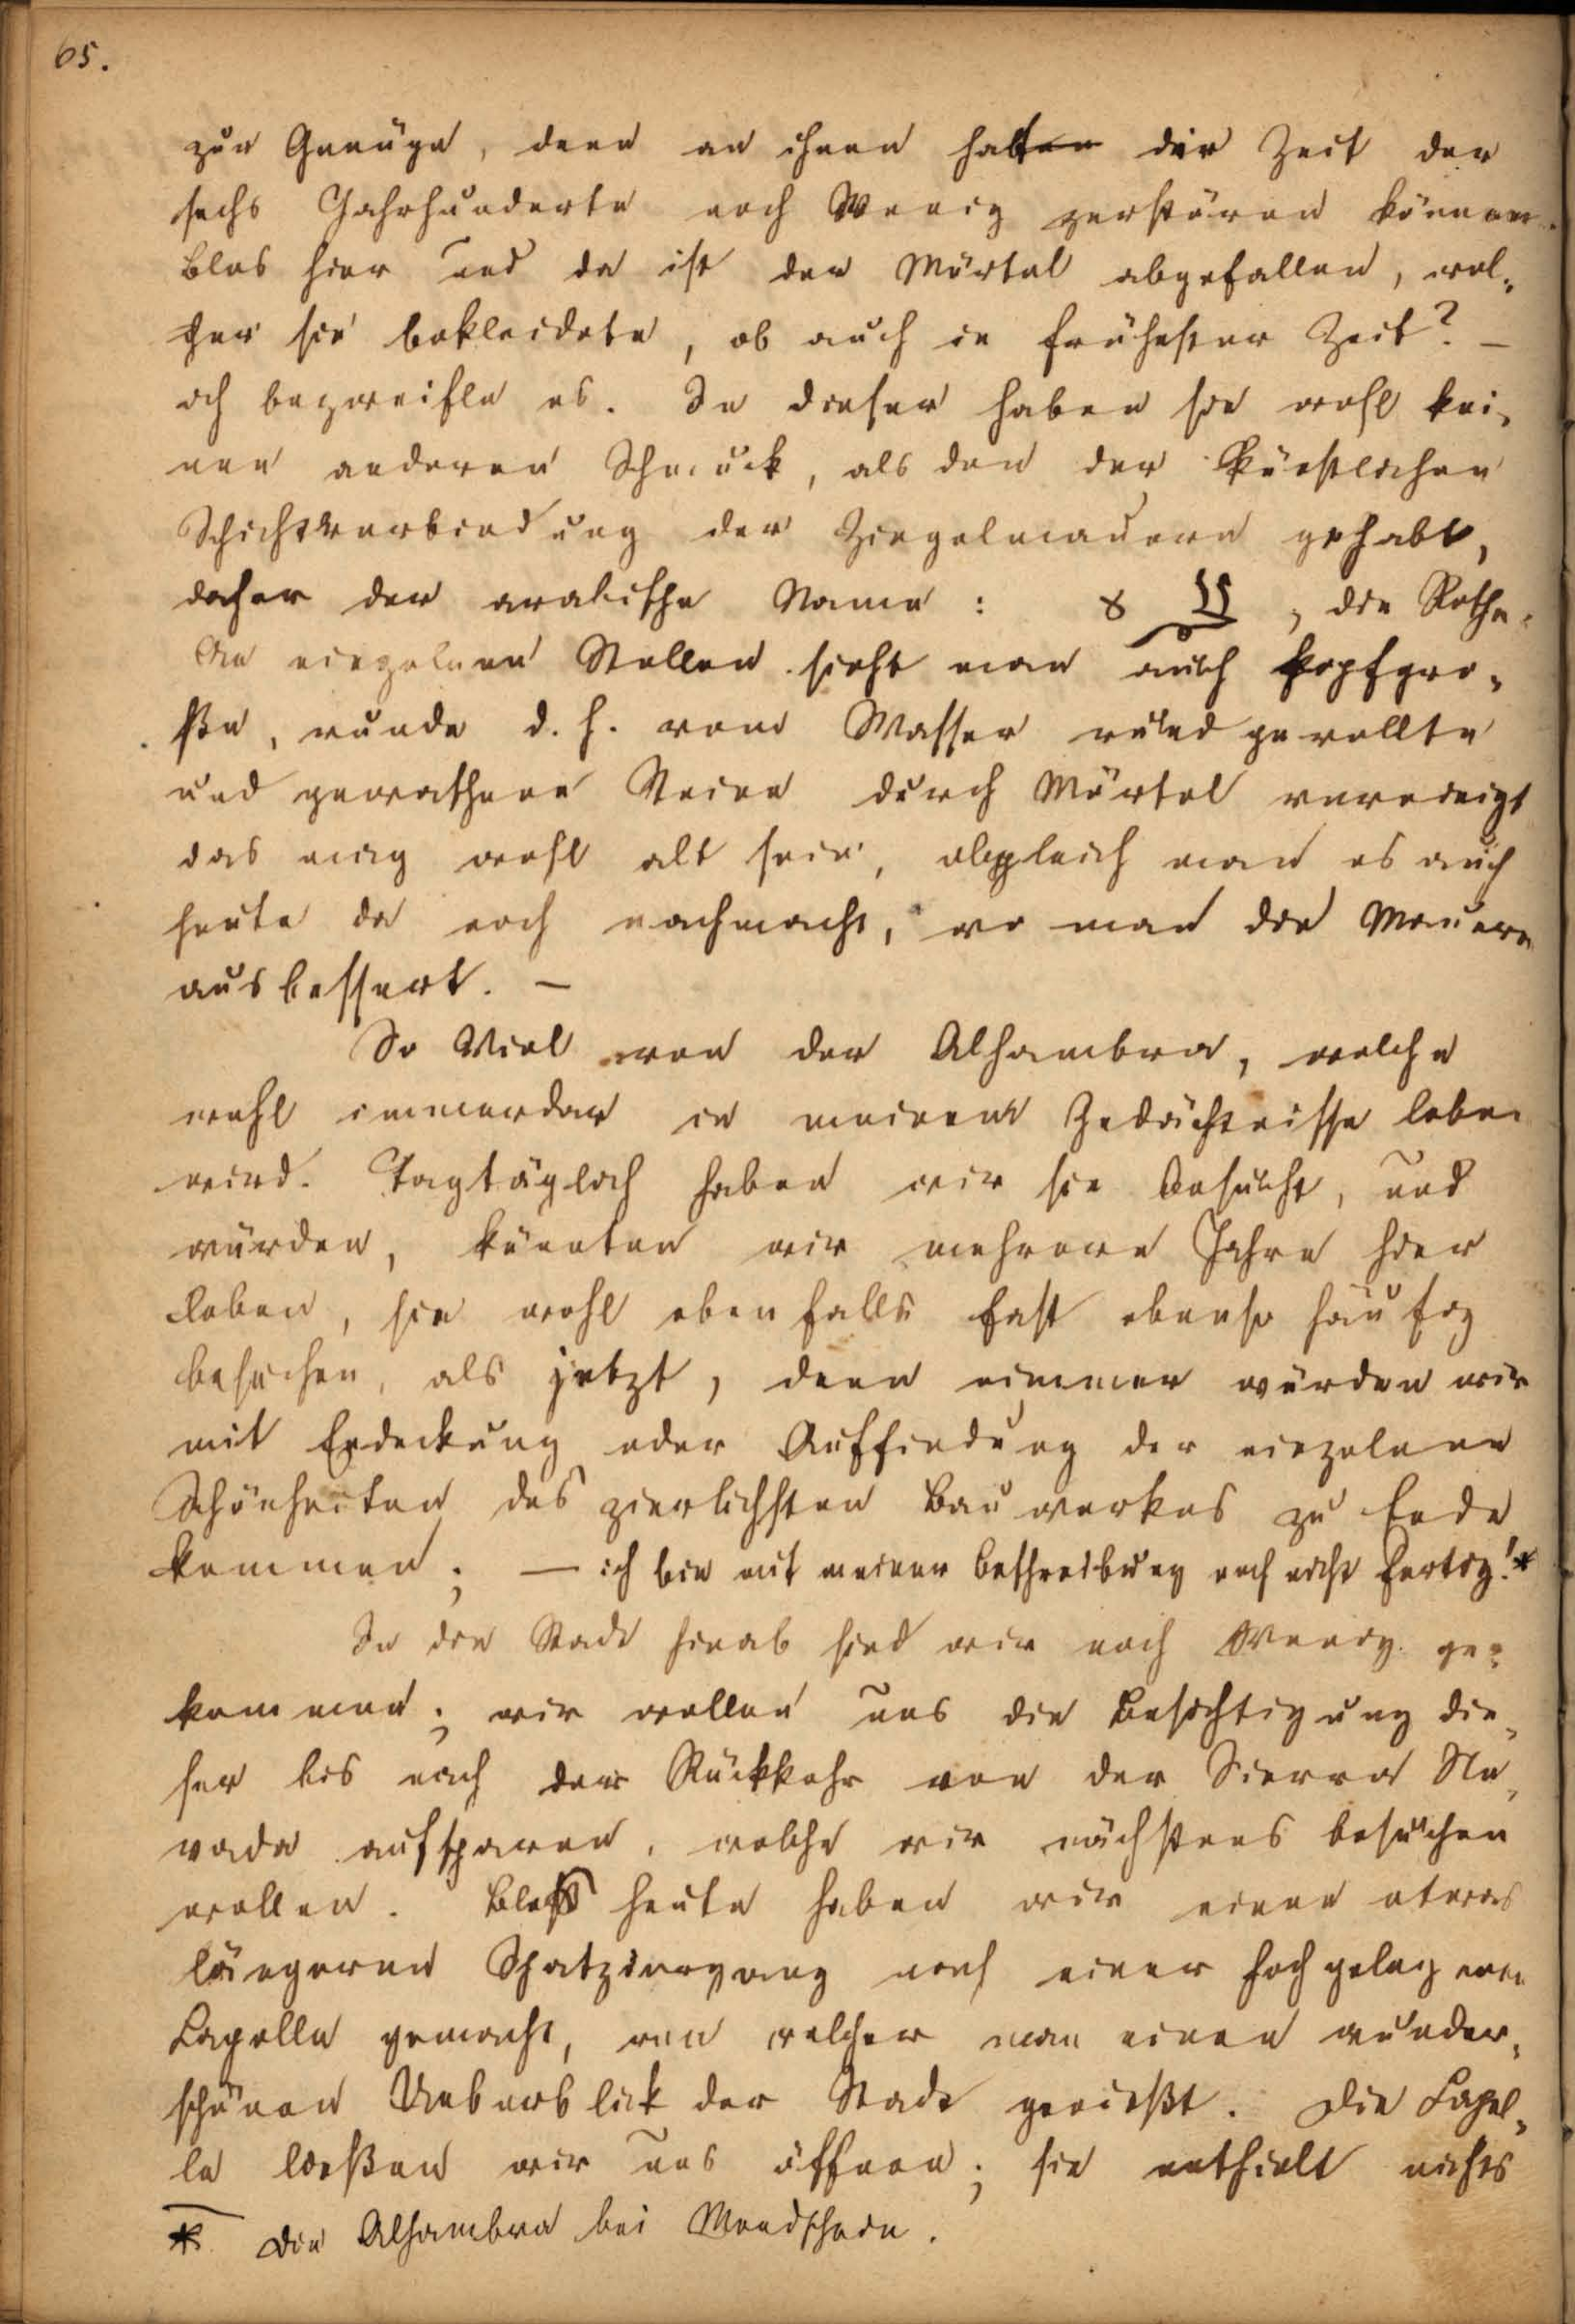 65.
zur Genüge, denn an ihnen hat die Zeit der
sechs Jahrhunderte noch Wenig zerstören können.
Blos hier und da ist der Mörtel abgefallen, wel-
cher sie bekleidete, ob auch in frühester Zeit? –
ich bezweifle es. In dieser haben sie wohl kei-
nen anderen Schmuck, als den der künstlichen
Schichtverbindung der Ziegelmauern gehabt,
daher der arabische Name : , die Rothe.
An einzelnen Stellen sieht man auch kopfgro-
ße, runde d. h. vom Wasser rund gerollte
und gewaschene Steine durch Mörtel vereinigt
das mag wohl alt sein, obgleich man es auch
heute da noch nachmacht, wo man die Mauern
ausbessert. –
So Viel von der Alhambra, welche
wohl immerdar in meinem Gedächtnisse leben
wird. Tagtäglich haben wir sie besucht, und
würden, könnten wir mehrere Jahre hier
leben, sie wohl ebenfalls fast ebenso häufig
besuchen, als jetzt, denn nimmer würden wir
mit Endeckung oder Auffindung der einzelnen
Schönheiten des zierlichsten Bauwerkes zu Ende
kommen; – ich bin mit meiner Beschreibung noch nicht fertig!*
In die Stadt hinab sind wir noch Wenig ge-
kommen; wir wollen uns die Besichtigung die-
ser bis nach der Rückkehr von der Sierra Ne-
vada aufsparen, welche wir nächstens besuchen
wollen. Blos heute haben wir einen etwas
längeren Spatziergang nach einer hochgelegenen
Capelle gemacht, von welcher man einen wunder-
schönen Ueberblick der Stadt genießt. Die Capel-
le ließen wir uns öffnen; sie enthielt nichts
* Die Alhambra bei Mondschein.